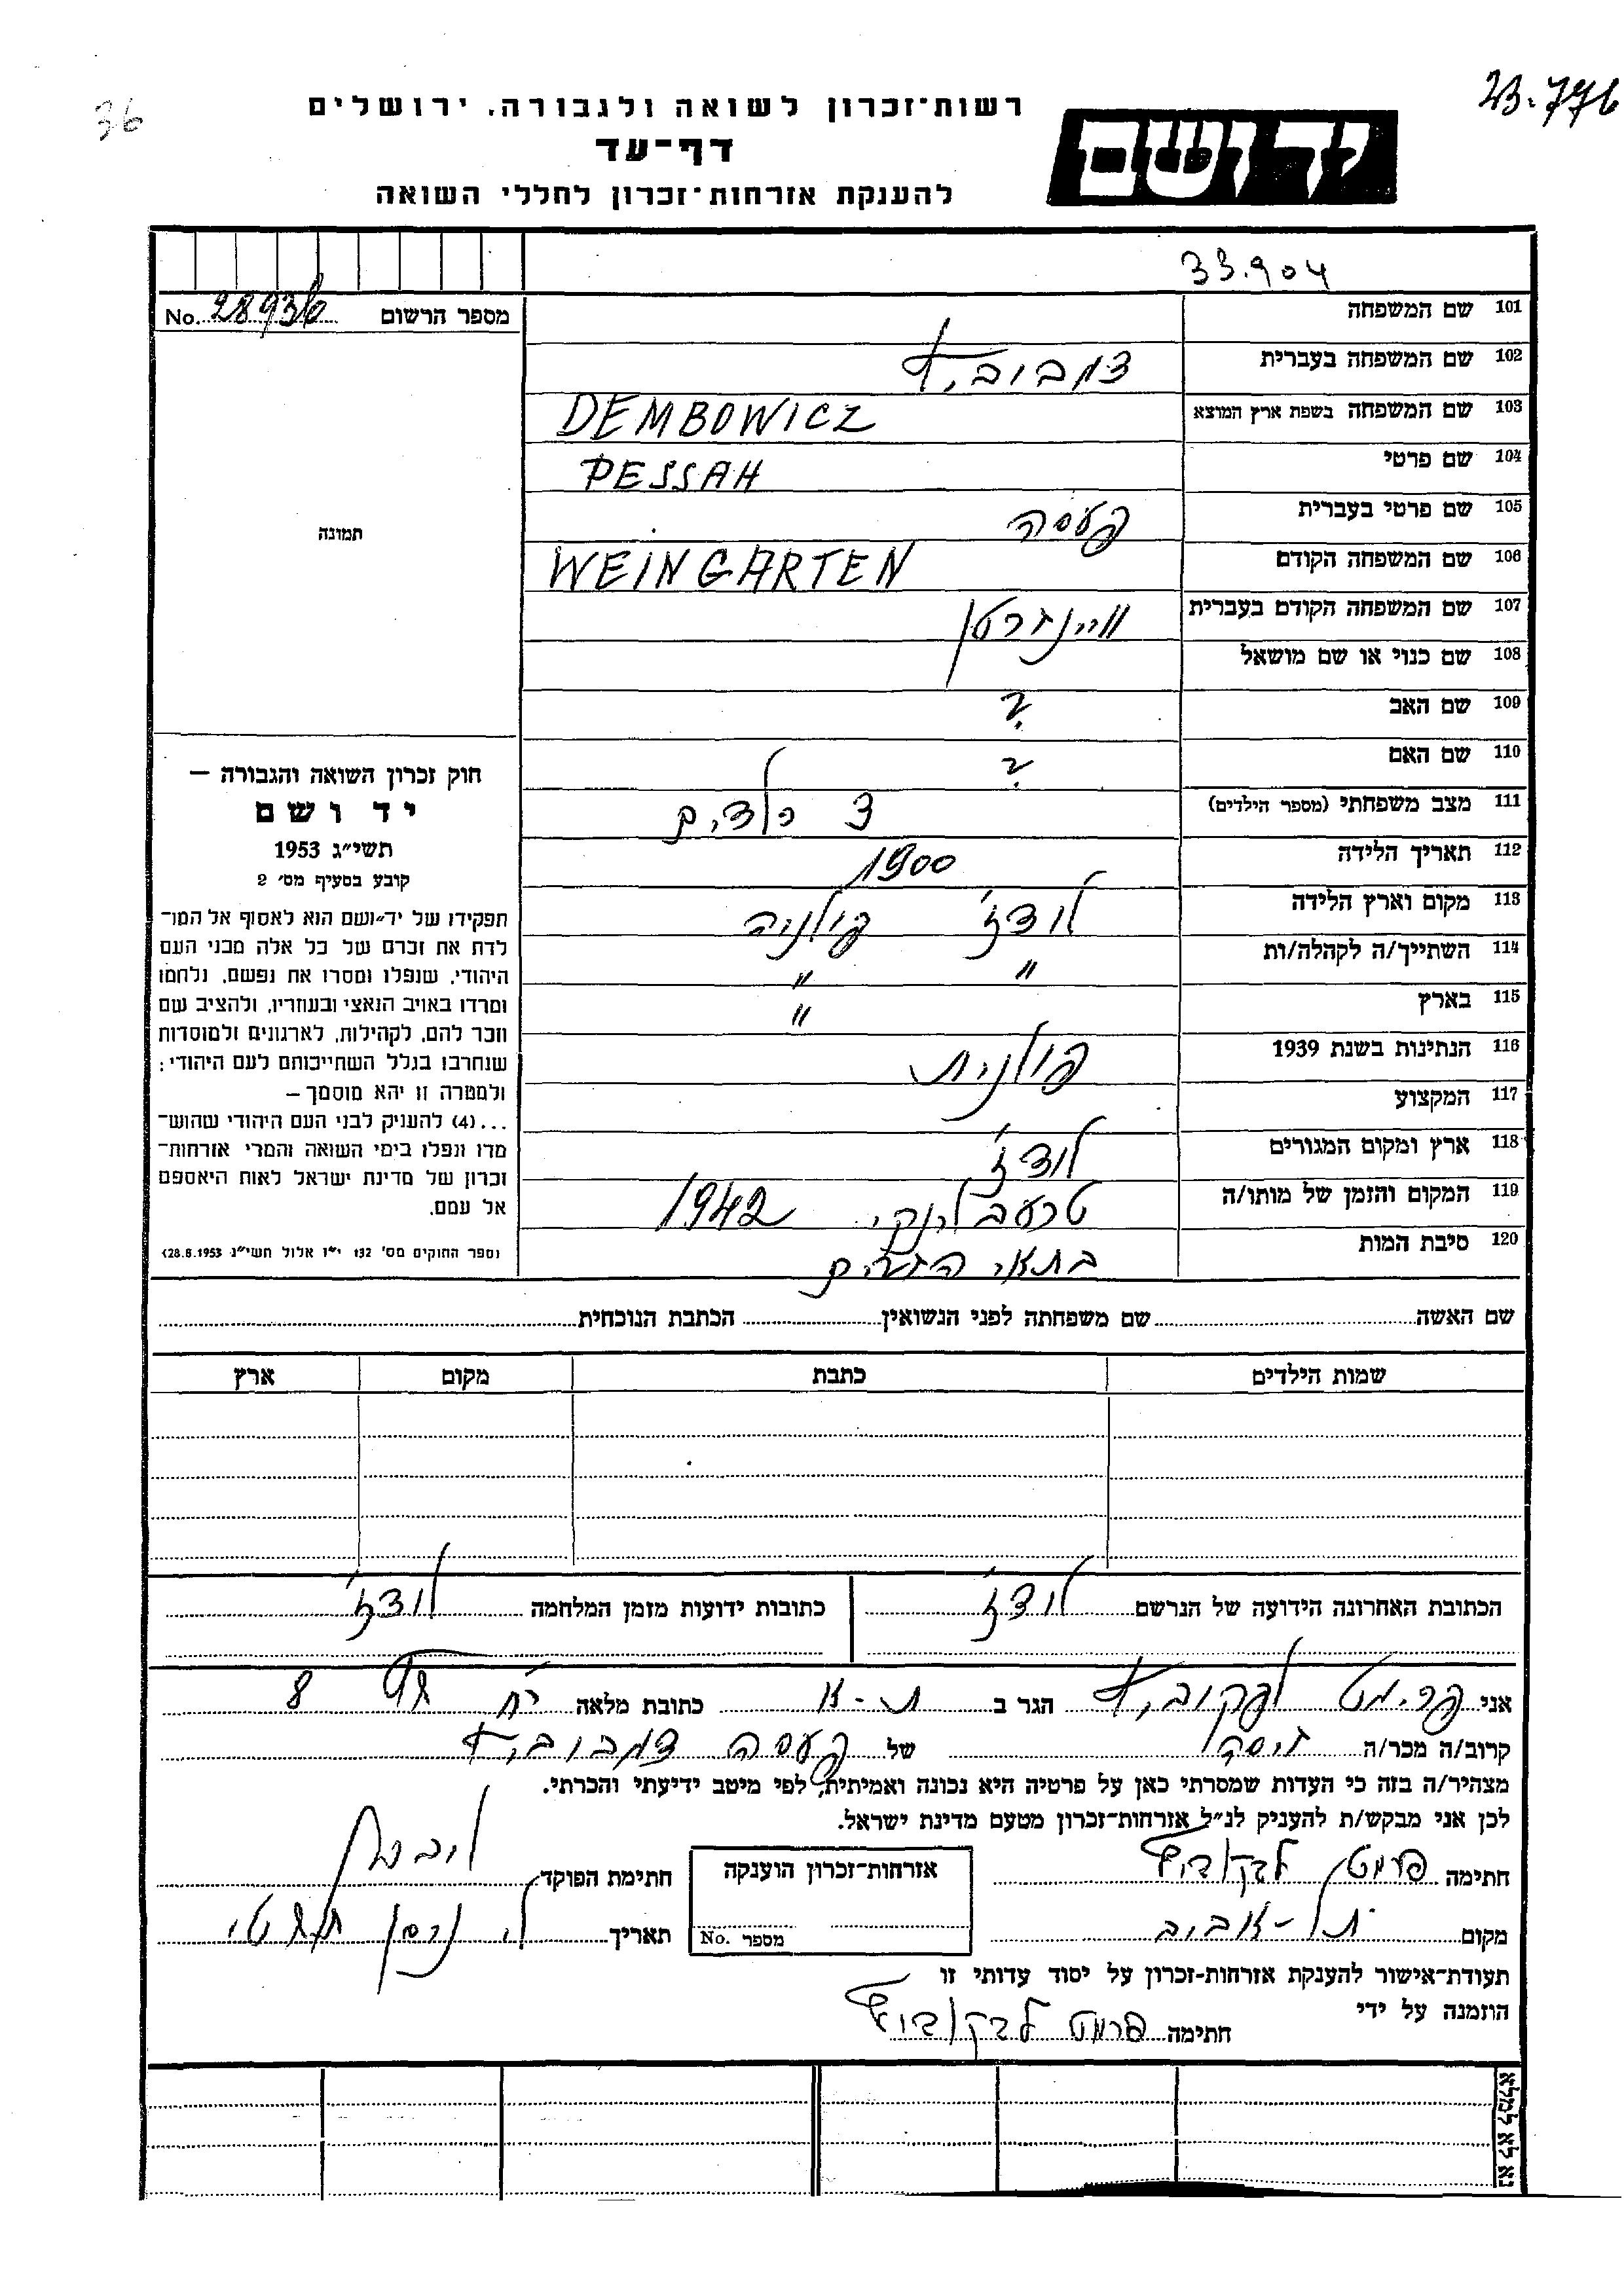 36
רשות-זכרון לשואה ולגבורה, ירושלים
23.776
דף-עד
יד ושם
להענקת אזרחות-זכרון לחללי השואה
33.904
מספר הרשום No. 28936
101 שם המשפחה
102 שם המשפחה בעברית דמבוביץ
103 שם המשפחה בשפת ארץ המוצא DEMBOWICZ
104 שם פרטי PESSAH
105 שם פרטי בעברית פעסה
תמונה
106 שם המשפחה הקודם WEINGARTEN
107 שם המשפחה הקודם בעברית וויינגרטן
108 שם כנוי או שם מושאל
109 שם האב ?
110 שם האם ?
111 מצב משפחתי (מספר הילדים) 3 ילדים
112 תאריך הלידה 1900
113 מקום וארץ הלידה לודז' פולניה
114 השתייך/ה לקהלה/ות " "
115 בארץ "
116 הנתינות בשנת 1939 פולנית
117 המקצוע
118 ארץ ומקום המגורים לודז'
119 המקום והזמן של מותו/ה טרעבלינקי 1942
120 סיבת המות בתאי הגזים
חוק זכרון השואה והגבורה —
יד ושם
תשי״ג 1953
קובע בסעיף מס׳ 2
תפקידו של יד־ושם הוא לאסוף אל המו־
לדת את זכרם של כל אלה מבני העם
היהודי, שנפלו ומסרו את נפשם, נלחמו
ומרדו באויב הנאצי ובעוזריו, ולהציב שם
וזכר להם, לקהילות, לארגונים ולמוסדות
שנחרבו בגלל השתייכותם לעם היהודי;
ולמטרה זו יהא מוסמך —
...(4) להעניק לבני העם היהודי שהוש־
מדו ונפלו בימי השואה והמרי אזרחות־
זכרון של מדינת ישראל לאות היאספם
אל עמם.
(ספר החוקים מס׳ 132 י״ז אלול תשי״ג 28.8.1953)
שם האשה שם משפחתה לפני הנשואין הכתבת הנוכחית
שמות הילדים כתבת מקום ארץ
הכתובת האחרונה הידועה של הנרשם לודז' כתובות ידועות מזמן המלחמה לודז'
אני פרימט לפקוביץ הגר ב ת-א כתובת מלאה 8
קרוב/ה מכר/ה של פעסה דמבוביץ
מצהיר/ה בזה כי העדות שמסרתי כאן על פרטיה היא נכונה ואמיתית, לפי מיטב ידיעתי והכרתי.
לכן אני מבקש/ת להעניק לנ״ל אזרחות־זכרון מטעם מדינת ישראל.
חתימה אזרחות־זכרון הוענקה חתימת הפוקד
מקום תל-אביב מספר No. תאריך ניסן
תעודת־אישור להענקת אזרחות־זכרון על יסוד עדותי זו
הוזמנה על ידי
חתימה
נא לא למלא